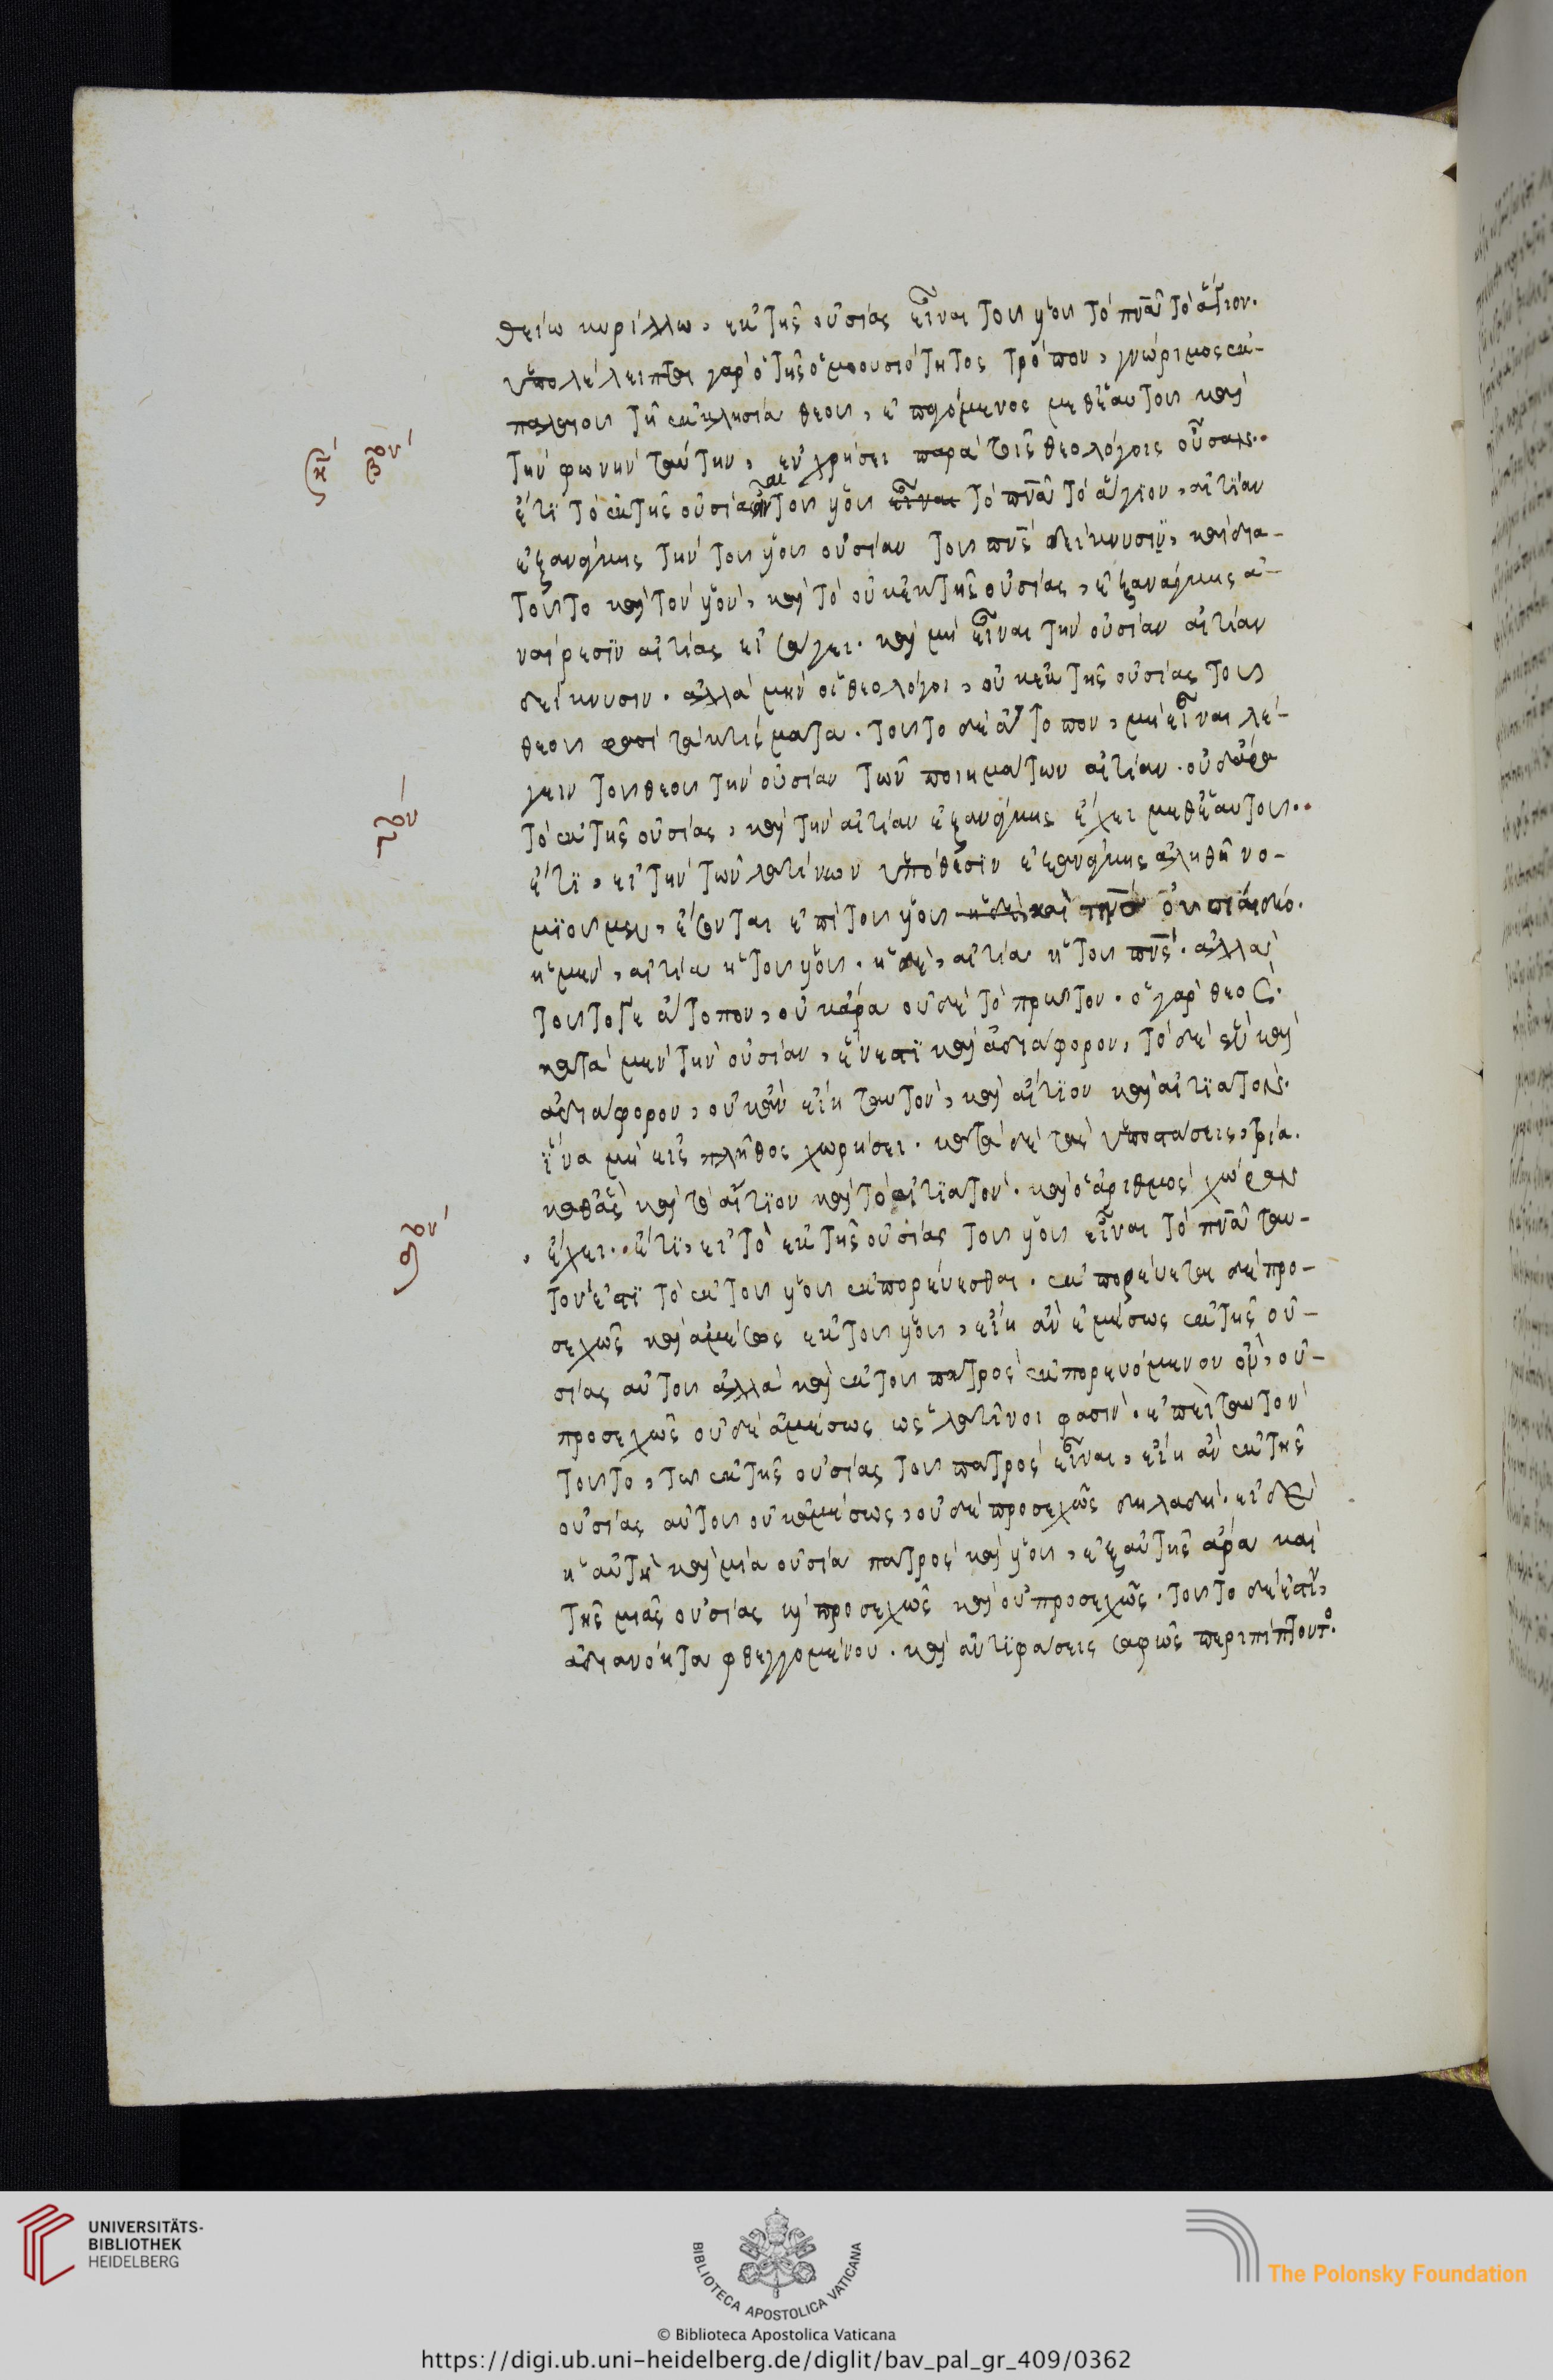 θείω κυρίλλω, ἐκ τῆς οὐσίας εἶναι τοῦ υἱοῦ τὸ πνᾶ τὸ ἅγιον.
ὑπολέλειπται γὰρ ὁ τῆς ὁμοουσιότητος τρόπου, γνώριμος ἐκ-
παλαιοῦ τῆ ἐκκλησία θεοῦ, ἐπαγόμενος μεθ' ἑαυτοῦ καὶ
τὴν φωνὴν ταύτην, ἐν χρήσει παρὰ τοῖς θεολόγοις οὖσαν..
ἔτϊ τὸ ἐκ τῆς οὐσίας τοῦ υἱοῦ εἶναι τὸ πνᾶ τὸ ἅγϊον, αἰτίαν
ἐξανάγκης τὴν τοῦ υἱοῦ οὐσίαν τοῦ πνς δείκνυσϊν, καὶ δια-
τοῦτο καὶ τὸν υἱὸν, καὶ τὸ οὐκ ἐκ τῆς οὐσίας, ἐξανάγκης ἀ-
ναίρεσϊν αἰτίας εἰσάγει. καὶ μὴ εἶναι τὴν οὐσίαν αἰτίαν
δείκνυσιν. ἀλλὰ μὴν οἱ θεολόγοι, οὐκ ἐκ τῆς οὐσίας τοῦ
θεοῦ φασὶ τὰ κτίσματα. τοῦτο δὲ ἄτοπον, μὴ εἶναι λέ-
γειν τοῦ θεοῦ τὴν οὐσίαν τῶν ποιημάτων αἰτίαν. οὐδ' ἄρα
τὸ ἐκ τῆς οὐσίας, καὶ τὴν αἰτίαν ἐξανάγκης ἔχει μεθ' ἑαυτοῦ..
ἔτϊ, εἰ τὴν τῶν λατίνων ὑπόθεσϊν ἐξανάγκης ἀληθῆ νο-
μϊοῦμεν, ἔσονται ἐπὶ τοῦ υἱοῦ καὶ οὐσίαι δύο.
ἡ μὲν, αἰτία ἡ τοῦ υἱοῦ. ἡ δὲ, αἰτία ἡ τοῦ πνς. ἀλλὰ
τοῦτό γε ἄτοπον, οὐκ ἄρα οὐδὲ τὸ πρῶτον. ὁ γὰρ θεὸς.
κατὰ μὲν τὴν οὐσίαν, ἕν ἐστϊ καὶ ἀδιάφορον, τὸ δὲ ἓν καὶ
ἀδιάφορον, οὐκ ἂν εἴη ταυτὸν, καὶ αἴτϊον καὶ αἰτϊατόν.
ἵνα μὴ εἰς πλῆθος χωρήσει. κατὰ δὲ τὰς ὑποστάσεις, τρία.
καθ' ἃς καὶ τὸ αἴτϊον καὶ τὸ αἰτϊατὸν. καὶ ὁ ἀριθμὸς χώραν
ἔχει.. ἔτϊ, εἰ τὸ ἐκ τῆς οὐσίας τοῦ υἱοῦ εἶναι τὸ πνᾶ ταυ-
τόν ἐστϊ τὸ ἐκ τοῦ υἱοῦ ἐκπορεύεσθαι. ἐκπορεύεται δὲ προ-
σεχῶς καὶ ἀμέσως ἐκ τοῦ υἱοῦ, εἴη ἂν ἐμμέσως ἐκ τῆς οὐ-
σίας αὐτοῦ ἀλλὰ καὶ ἐκ τοῦ πατρὸς ἐκπορευόμενον ὂν, οὐ-
προσεχῶς οὐδὲ ἀμέσως ὡς λατῖνοι φασιν. ἐπεὶ ταυτὸν
τοῦτο, τῶ ἐκ τῆς οὐσίας τοῦ πατρὸς εἶναι, εἴη ἂν ἐκ τῆς
οὐσίας αὐτοῦ οὐκ ἀμέσως, οὐδὲ προσεχῶς δηλαδὴ. εἰ δὲ
ἡ αὐτὴ καὶ μία οὐσία πατρὸς καὶ υἱοῦ, ἐξ αὐτῆς ἄρα καὶ
τῆς μιᾶς οὐσίας καὶ προσεχῶς καὶ οὐ προσεχῶς. τοῦτο δέ ἐστϊν,
ἀδιανόητα φθεγγομένου. καὶ ἀντϊφάσεις σαφῶς περιπίπτοντο.
UNIVERSITÄTS-
BIBLIOTHEK
HEIDELBERG
BIBLIOTECA APOSTOLICA VATICANA
© Biblioteca Apostolica Vaticana
The Polonsky Foundation
https://digi.ub.uni-heidelberg.de/diglit/bav_pal_gr_409/0362